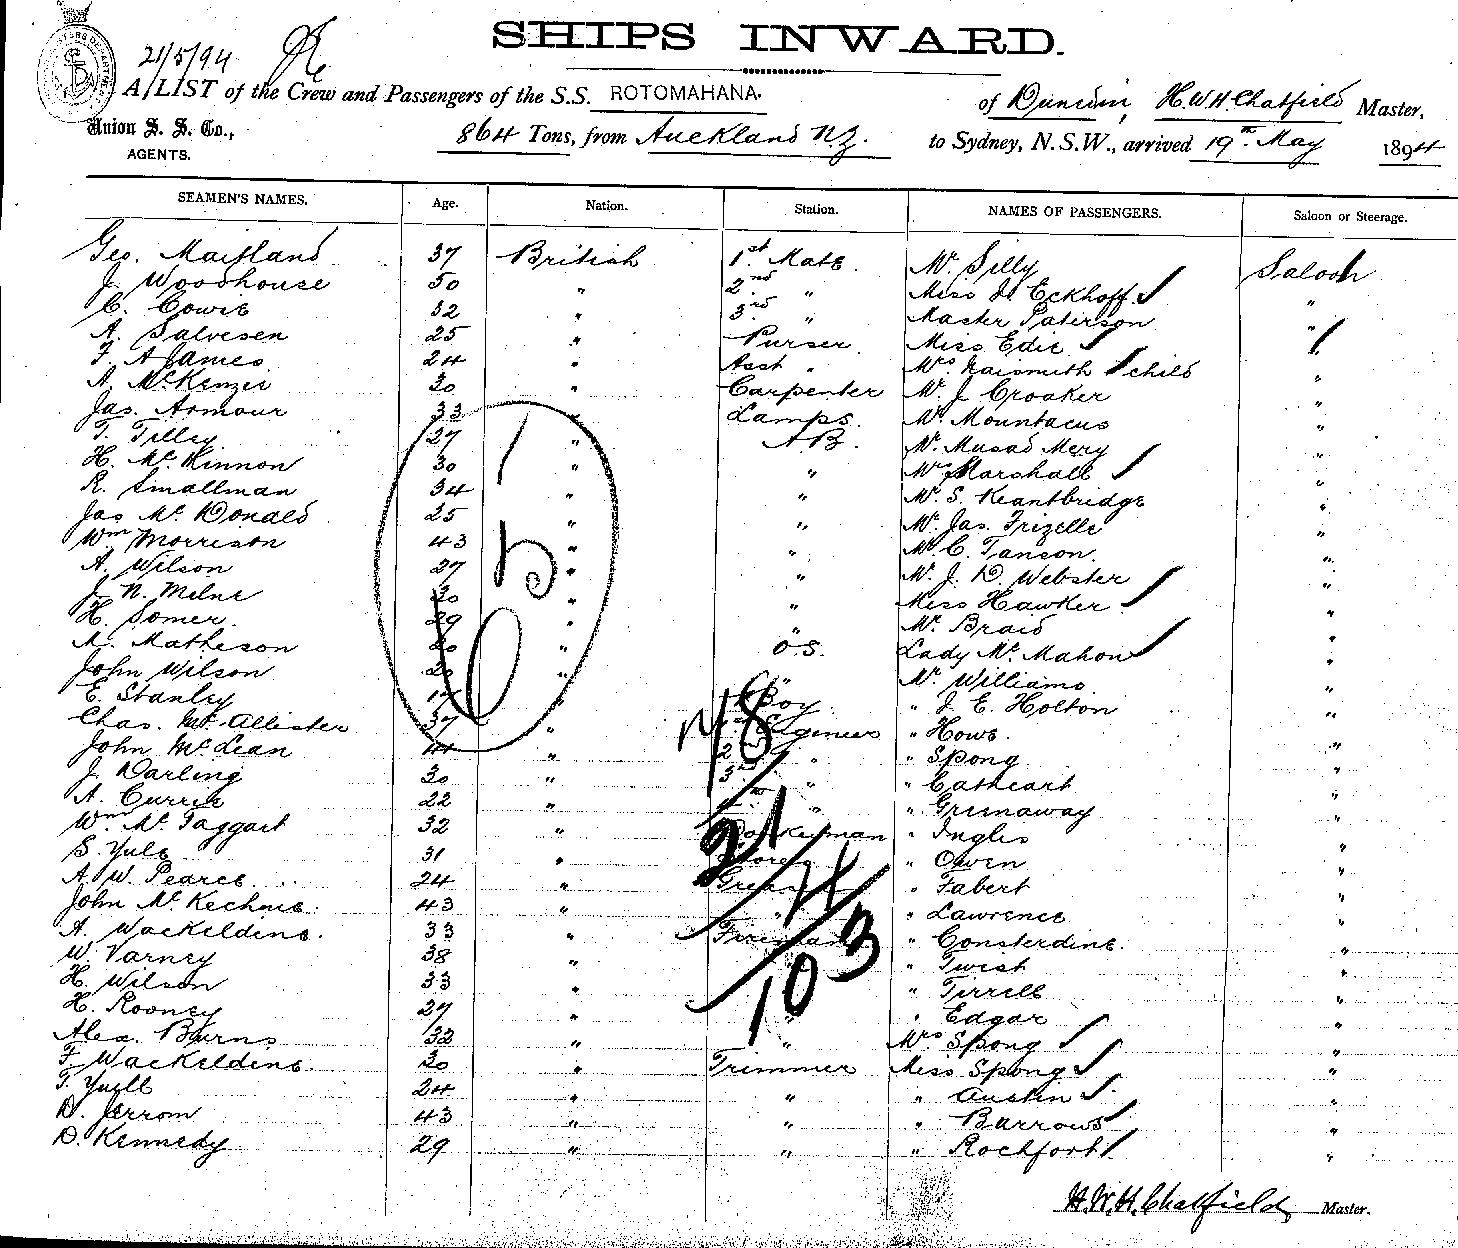 SHIPS INWARD.
21/5/94
A LIST of the Crew and Passengers of the S.S. ROTOMAHANA. of Dunedin, H.W.H. Chatfield Master,
Union S. S. Co., AGENTS. 864 Tons, from Auckland N.Z. to Sydney, N.S.W., arrived 19th May 1894
SEAMEN'S NAMES. Age. Nation. Station. NAMES OF PASSENGERS. Saloon or Steerage.
Geo. Maitland 37 British 1st Mate Mr. Silly Saloon
J. Woodhouse 50 " 2nd " Miss H Eckhoff "
C. Cowie 32 " 3rd " Master Paterson "
A. Salvesen 25 " Purser Miss Edie "
F. A James 24 " Asst " Mrs. Naismith child
A. McKenzie 30 " Carpenter Mr. J. Croaker "
Jas. Armour 33 " Lamps. Mr. Mountacus "
T. Tilley 27 " A B. Mr. Musad Mery "
H. McKinnon 30 " " Mrs Marshall "
R. Smallman 34 " " Mr. S. Keantbridge "
Jas McDonald 25 " " Mr. Jas. Frizelle "
Wm Morrison 43 " " Mr. C. Tanson "
A. Wilson 27 " " Mr. J. D. Webster "
J. N. Milne 30 " " Miss Hawker "
H. Somer. 29 " " Mr. Braid "
A. Matheson 20 " O S. Lady McMahon "
John Wilson 20 " " Mr. Williams "
E. Stanley 17 " Boy " J. E. Holton "
Chas. McAllister 37 " Engineer " Howe. "
John McLean 44 " 2nd " " Spong "
J. Darling 30 " 3rd " " Cathcart "
A. Currie 22 " " " Greenaway "
Wm. McTaggart 32 " " Ingles "
S. Yule 31 " " Owen "
A. W. Pearce 24 " " Fabert "
John McKechnie 43 " " " Lawrence "
A. Wackeldene. 33 " Fireman " Consterdine. "
W. Varney 38 " " Twist "
H. Wilson 33 " " Tirrell "
H. Rooney 27 " " " Edgar "
Alex. Burns 32 " " Mrs Spong "
F. Wackeldene 20 " Trimmer Miss Spong "
T. Yuill 24 " " " Austin "
D. Jerrom 43 " " " Barrows "
D. Kennedy 29 " " " Rochfort "
65
78
21
4
103
H.W.H. Chatfield Master.